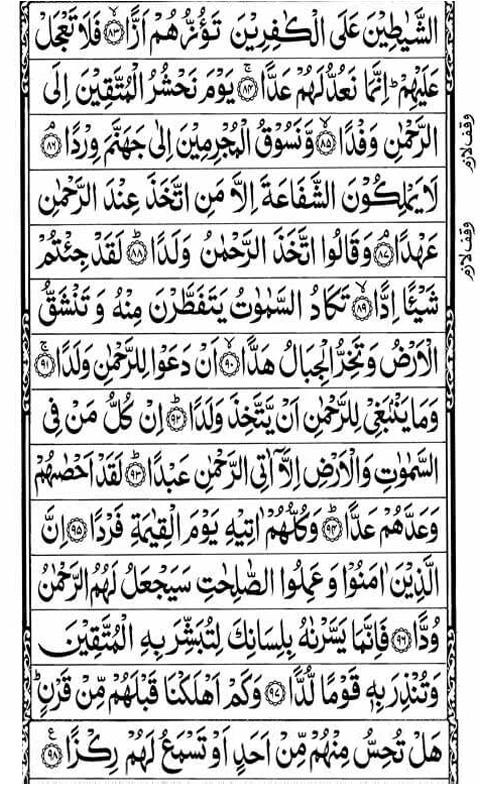 الشَّيٰطِيْنَ عَلَى الْكٰفِرِيْنَ تَؤُزُّهُمْ اَزًّا ۙ﴿۸۳﴾ فَلَا تَعْجَلْ
عَلَيْهِمْ ؕ اِنَّمَا نَعُدُّ لَهُمْ عَدًّا ۚ﴿۸۴﴾ يَوْمَ نَحْشُرُ الْمُتَّقِيْنَ اِلَى
الرَّحْمٰنِ وَفْدًا ۙ﴿۸۵﴾ وَّنَسُوْقُ الْمُجْرِمِيْنَ اِلٰى جَهَنَّمَ وِرْدًا ۘ﴿۸۶﴾
وقف لازم
لَا يَمْلِكُوْنَ الشَّفَاعَةَ اِلَّا مَنِ اتَّخَذَ عِنْدَ الرَّحْمٰنِ
عَهْدًا ۘ﴿۸۷﴾ وَقَالُوا اتَّخَذَ الرَّحْمٰنُ وَلَدًا ؕ﴿۸۸﴾ لَقَدْ جِئْتُمْ
وقف لازم
شَيْـًٔا اِدًّا ۙ﴿۸۹﴾ تَكَادُ السَّمٰوٰتُ يَتَفَطَّرْنَ مِنْهُ وَ تَنْشَقُّ
الْاَرْضُ وَ تَخِرُّ الْجِبَالُ هَدًّا ۙ﴿۹۰﴾ اَنْ دَعَوْا لِلرَّحْمٰنِ وَلَدًا ۚ﴿۹۱﴾
وَمَا يَنْۢبَغِيْ لِلرَّحْمٰنِ اَنْ يَّتَّخِذَ وَلَدًا ؕ﴿۹۲﴾ اِنْ كُلُّ مَنْ فِى
السَّمٰوٰتِ وَالْاَرْضِ اِلَّاۤ اٰتِى الرَّحْمٰنِ عَبْدًا ؕ﴿۹۳﴾ لَقَدْ اَحْصٰىهُمْ
وَعَدَّهُمْ عَدًّا ؕ﴿۹۴﴾ وَكُلُّهُمْ اٰتِيْهِ يَوْمَ الْقِيٰمَةِ فَرْدًا ﴿۹۵﴾ اِنَّ
الَّذِيْنَ اٰمَنُوْا وَ عَمِلُوا الصّٰلِحٰتِ سَيَجْعَلُ لَهُمُ الرَّحْمٰنُ
وُدًّا ﴿۹۶﴾ فَاِنَّمَا يَسَّرْنٰهُ بِلِسَانِكَ لِتُبَشِّرَ بِهِ الْمُتَّقِيْنَ
وَتُنْذِرَ بِهٖ قَوْمًا لُّدًّا ﴿۹۷﴾ وَكَمْ اَهْلَكْنَا قَبْلَهُمْ مِّنْ قَرْنٍ ؕ
هَلْ تُحِسُّ مِنْهُمْ مِّنْ اَحَدٍ اَوْ تَسْمَعُ لَهُمْ رِكْزًا ﴿۹۸﴾ ع